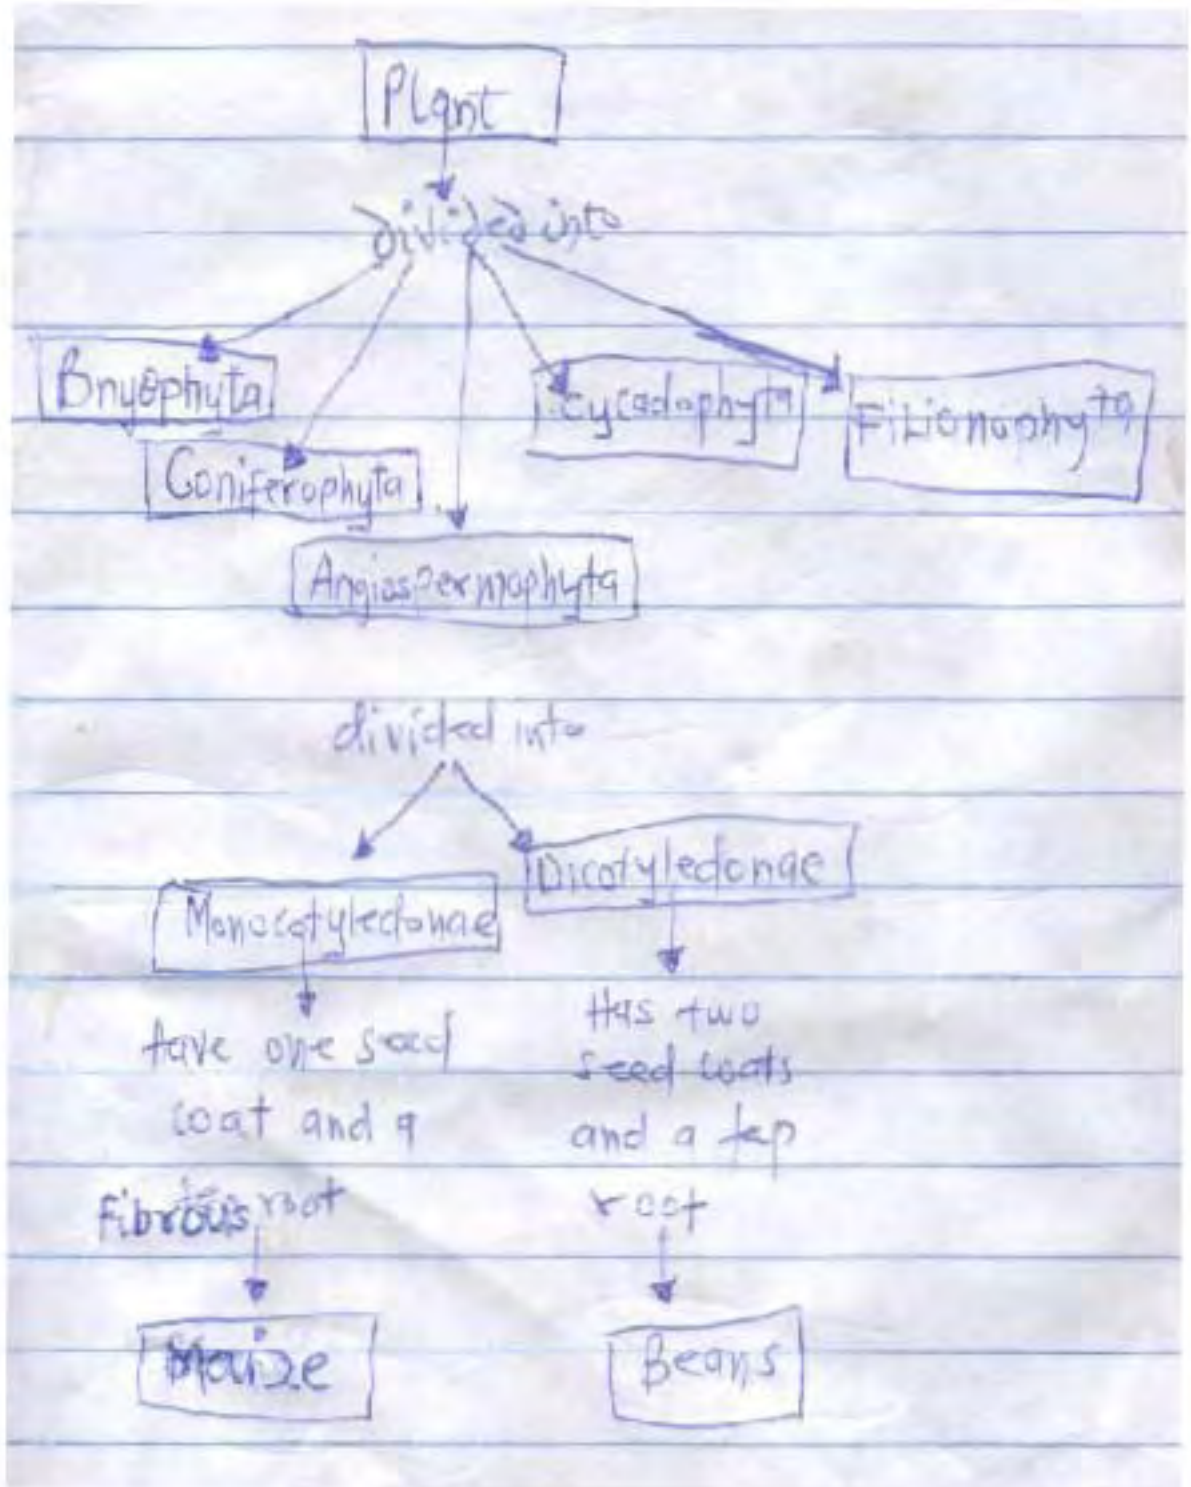 Plant
divided into
Bryophyta
Cycadophyta
Filionophyta
Coniferophyta
Angiospermophyta
divided into
Dicotyledonae
Monocotyledonae
have one seed
coat and a
Fibrous root
Has two
seed coats
and a tap
root
Maize
Beans